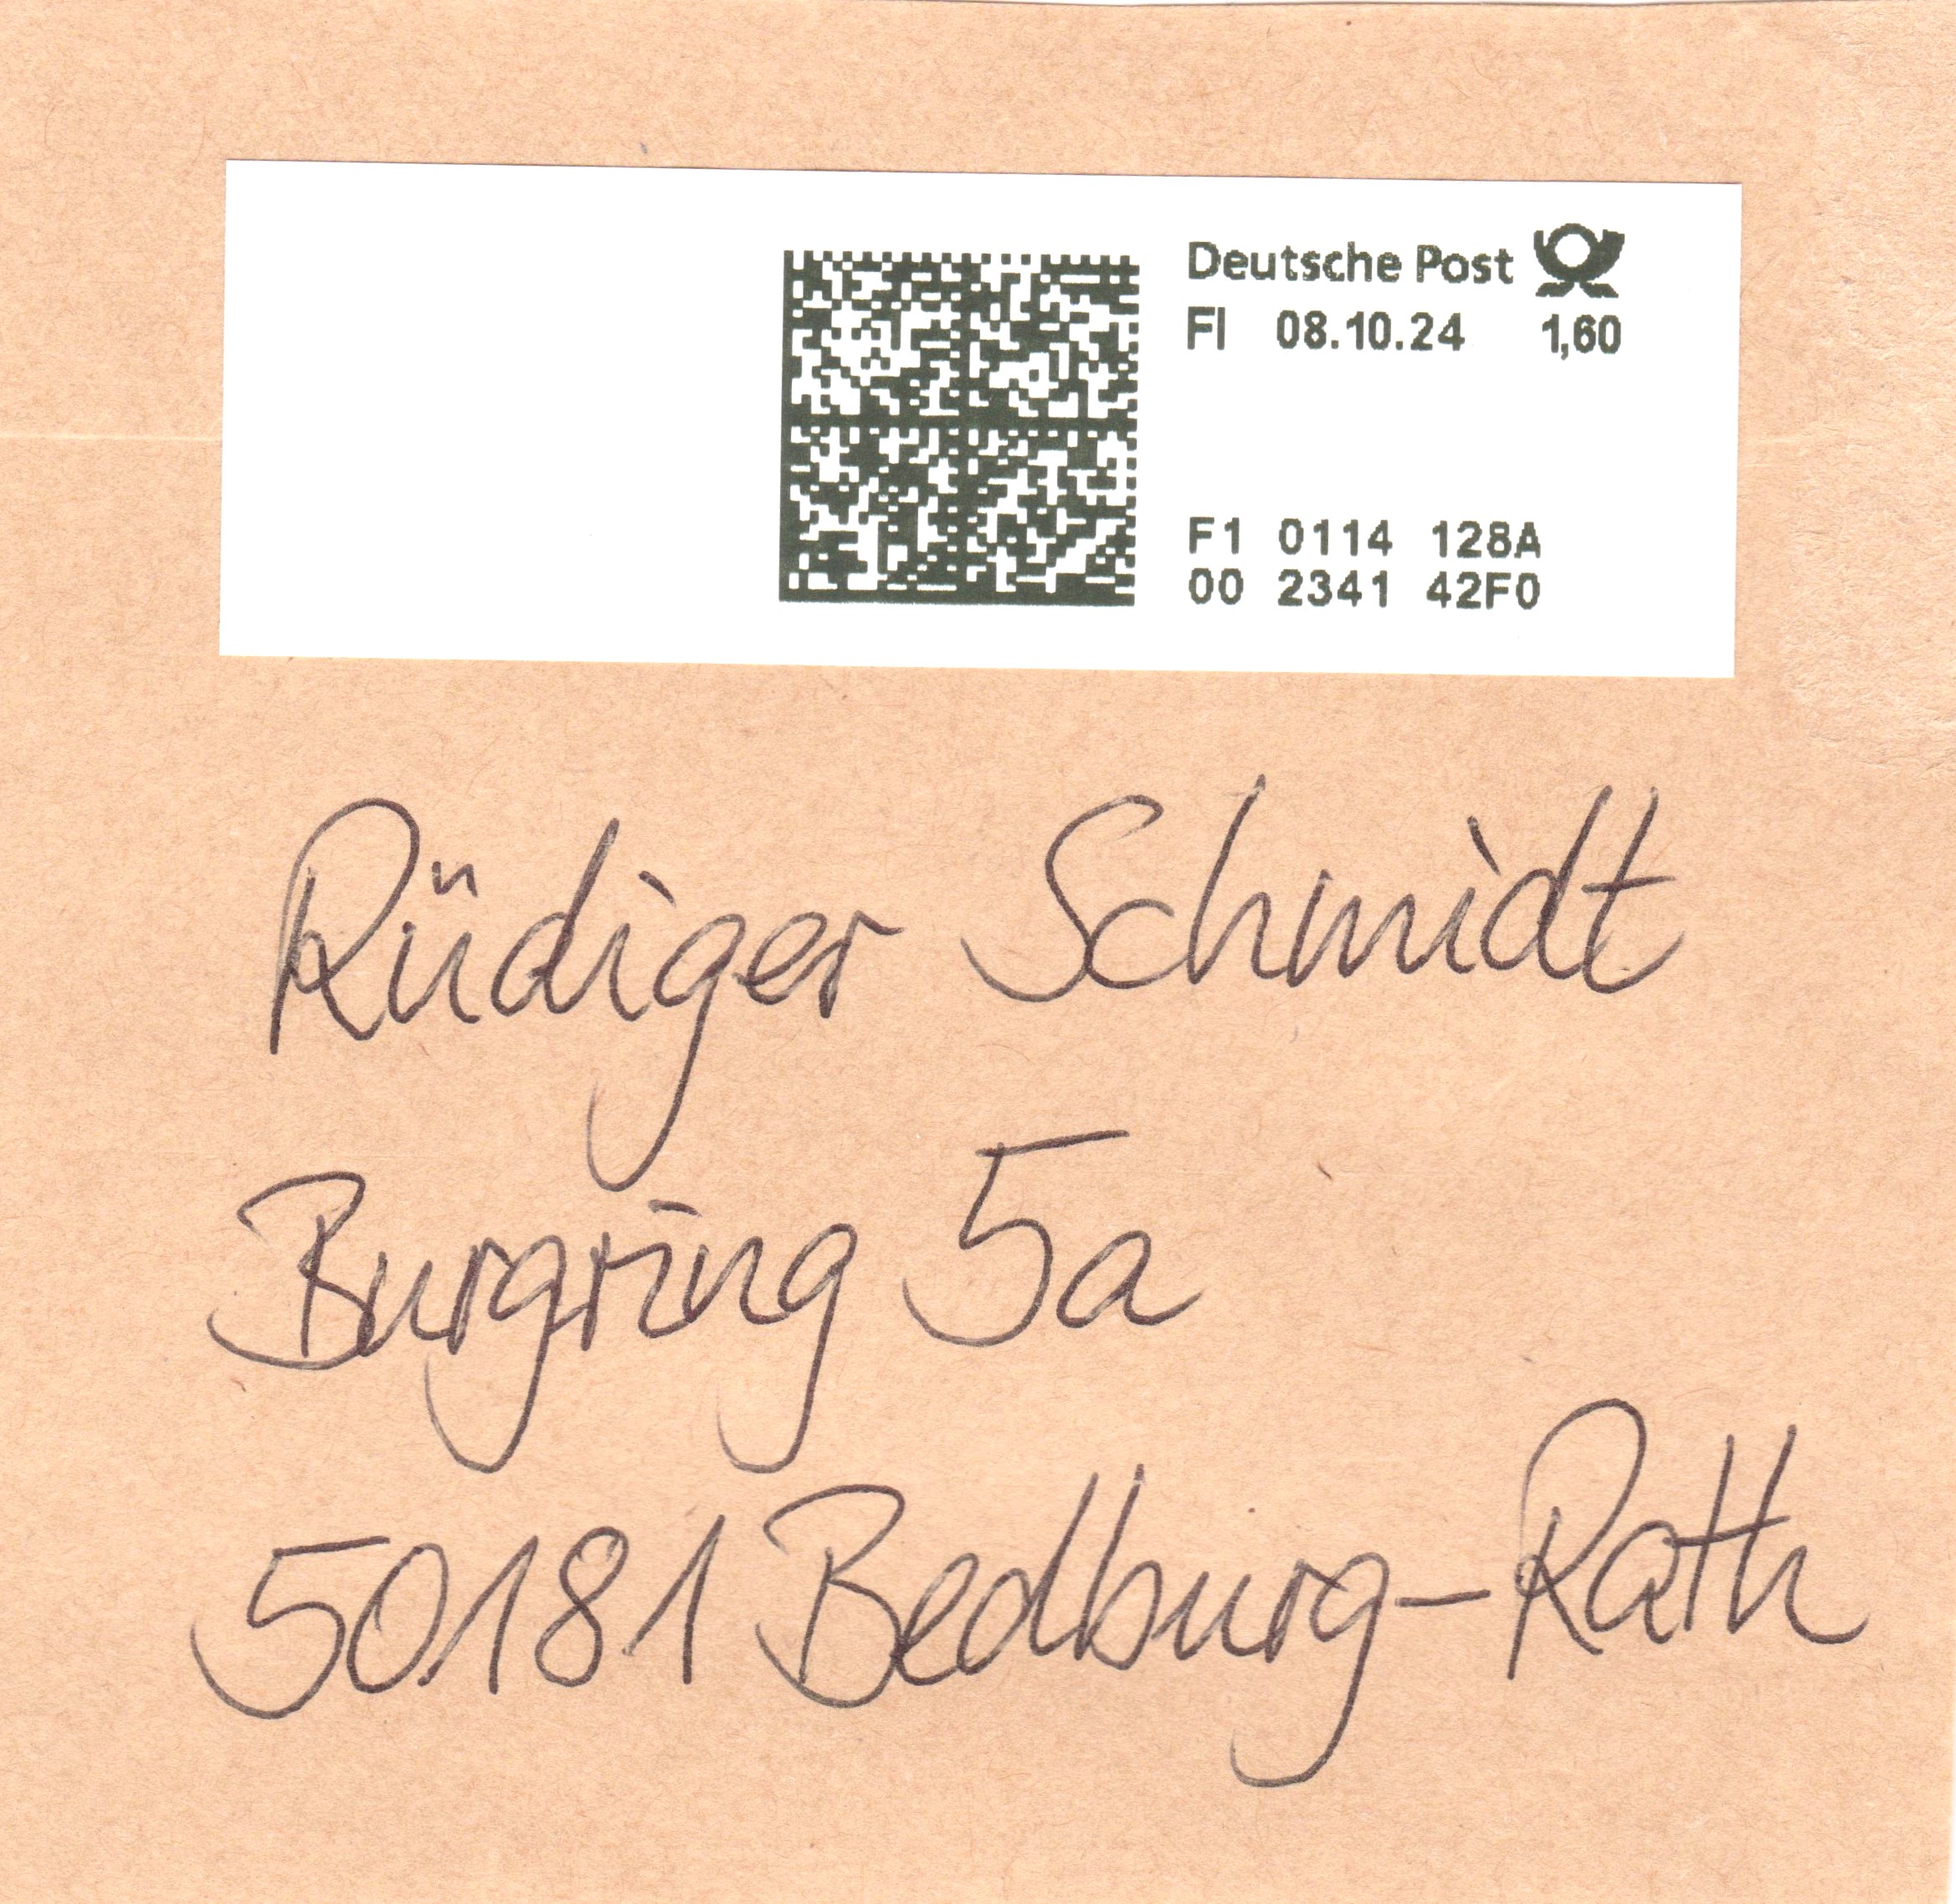 Deutsche Post
FI 08.10.24 1,60
F1 0114 128A
00 2341 42F0
Rüdiger Schmidt
Burgring 5a
50181 Bedburg-Rath